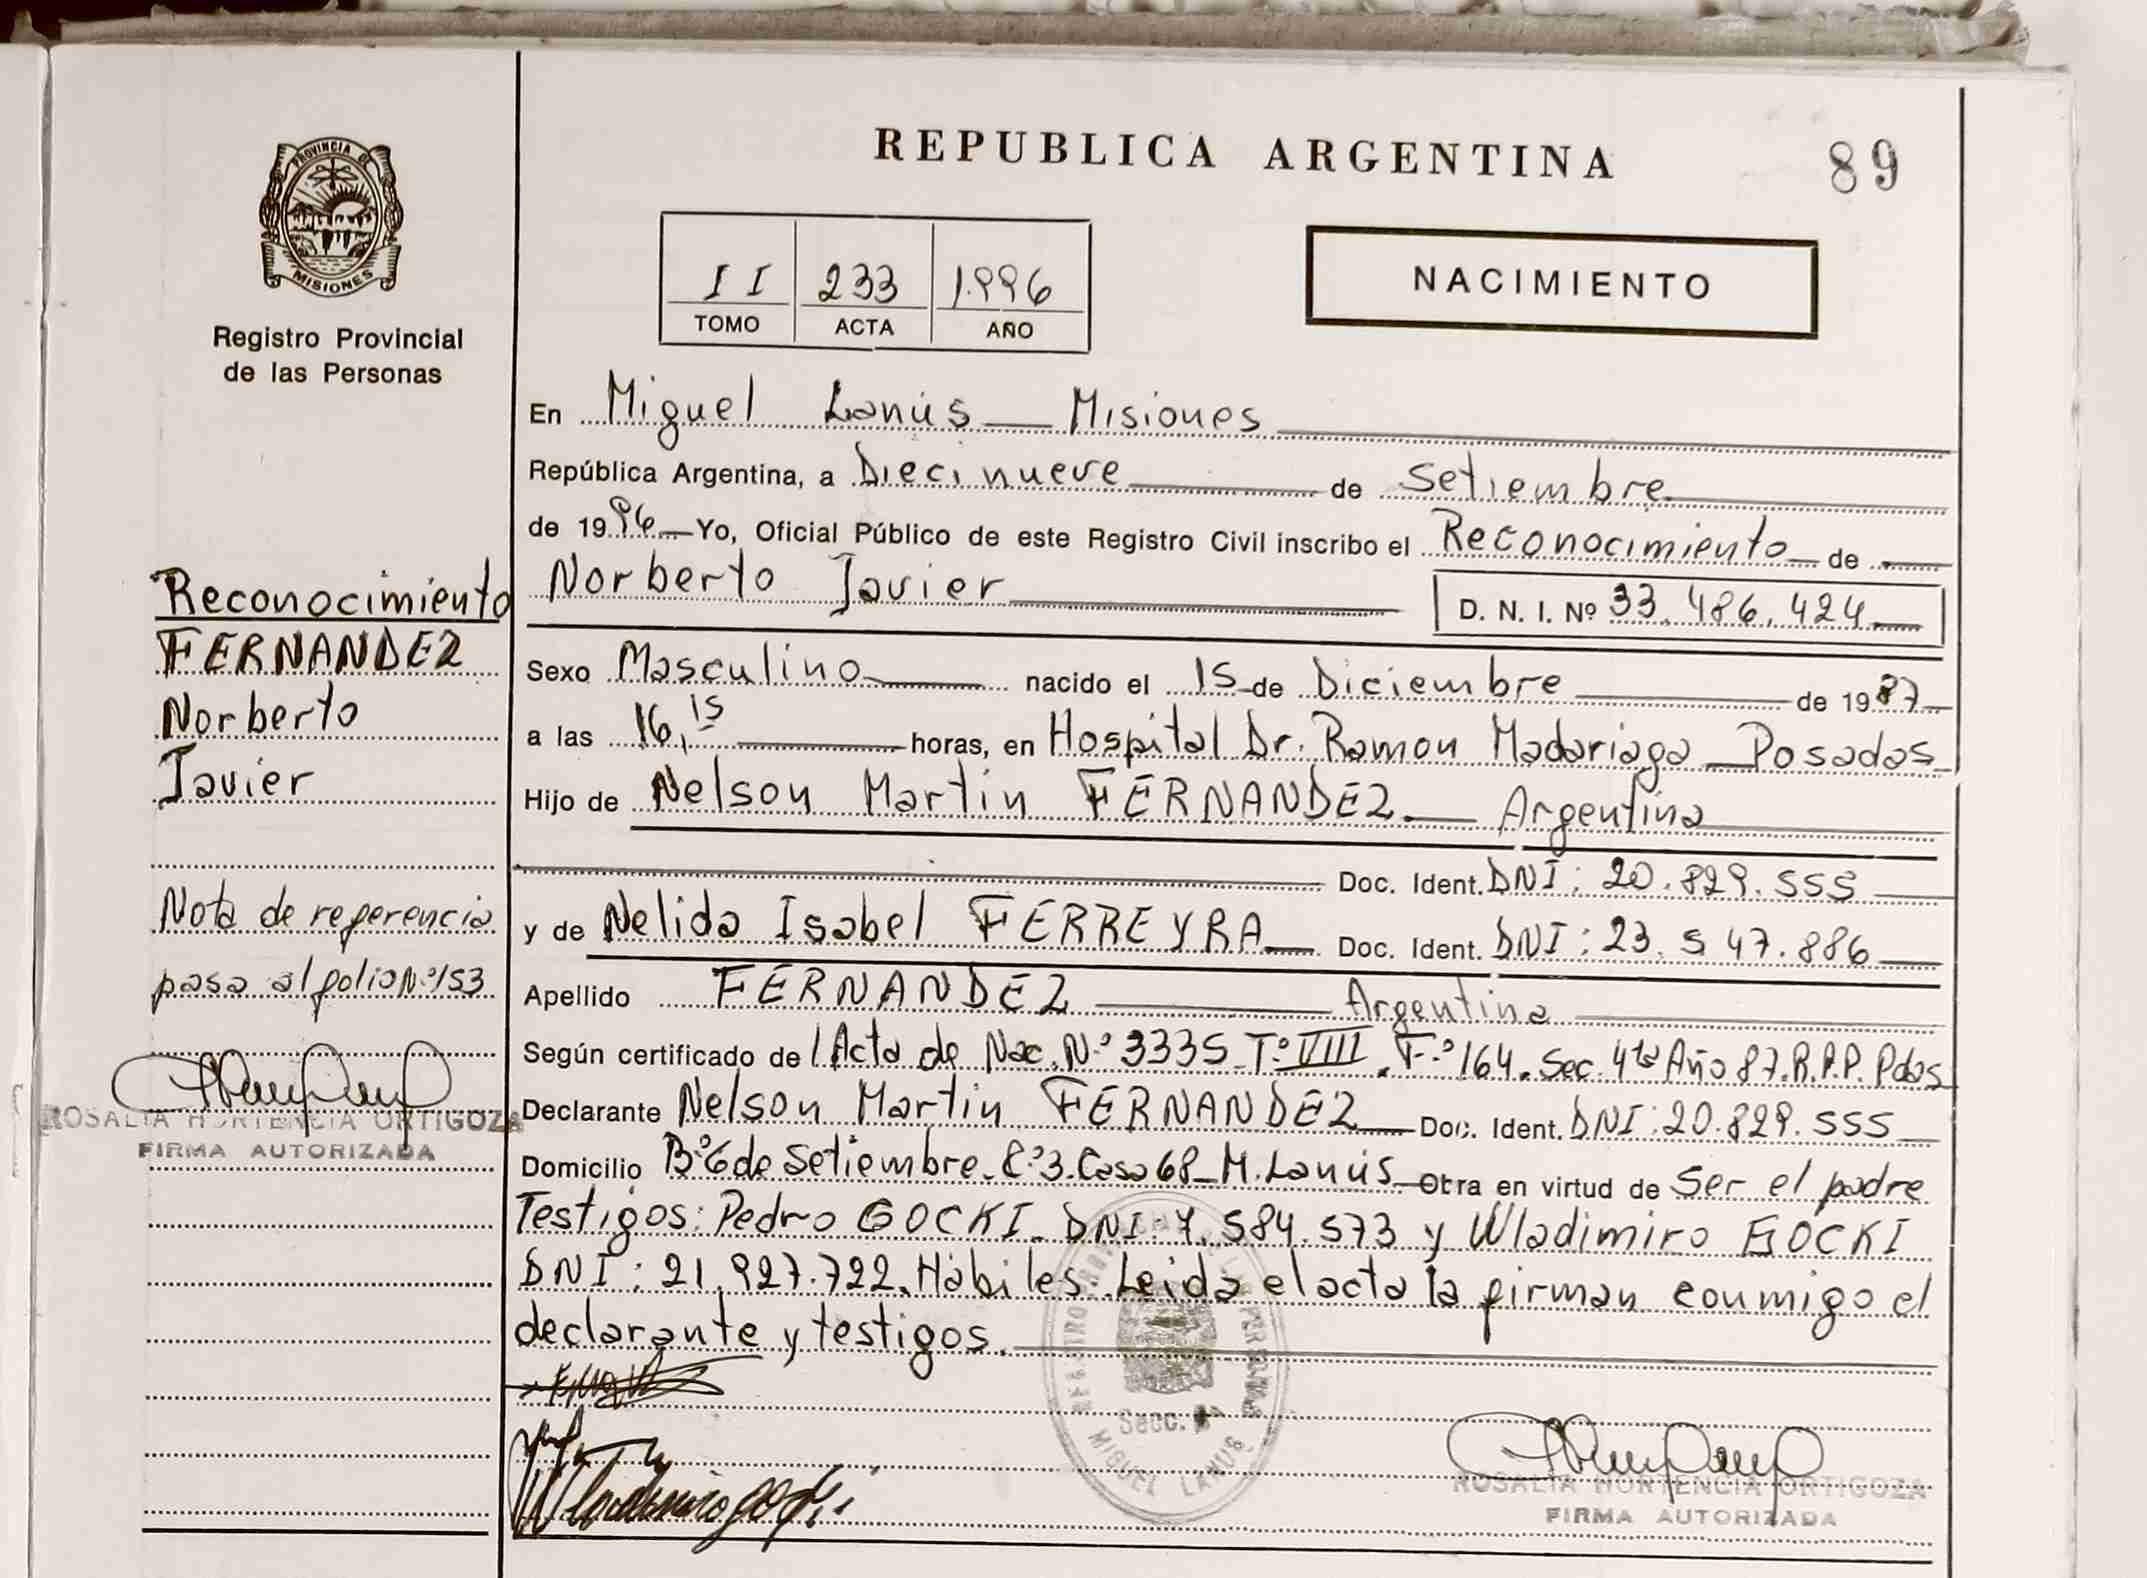 PROVINCIA DE
MISIONES
Registro Provincial
de las Personas
Reconocimiento
FERNANDEZ
Norberto
Javier
Nota de referencia
pasa al folio Nº 153
ROSALIA HORTENCIA ORTIGOZA
FIRMA AUTORIZADA
REPUBLICA ARGENTINA
89
II 233 1.996
TOMO ACTA AÑO
NACIMIENTO
En Miguel Lanús - Misiones
República Argentina, a Diecinueve de Setiembre
de 1996 Yo, Oficial Público de este Registro Civil inscribo el Reconocimiento de
Norberto Javier D. N. I. Nº 33.486.424
Sexo Masculino nacido el 15 de Diciembre de 1987
a las 16,15 horas, en Hospital Dr. Ramon Madariaga - Posadas
Hijo de Nelson Martin FERNANDEZ - Argentina
Doc. Ident. DNI: 20.829.555
y de Nelida Isabel FERREYRA Doc. Ident. DNI: 23.547.886
Apellido FERNANDEZ Argentina
Según certificado de l Acta de Nac. Nº 3335 Tº VIII. Fº 164. Sec. 4ta Año 87. R.P.P. Pdas
Declarante Nelson Martin FERNANDEZ Doc. Ident. DNI: 20.829.555
Domicilio Bº 6 de Setiembre. C. 3. Casa 68 - M. Lanús Obra en virtud de Ser el padre
Testigos: Pedro GOCKI. DNI: 7.584.573 y Wladimiro GOCKI
DNI: 21.927.722. Hábiles. Leida el acta la firman conmigo el
declarante y testigos.
REGISTRO PROVINCIAL DE LAS PERSONAS
Secc.
MIGUEL LANUS
ROSALIA HORTENCIA ORTIGOZA
FIRMA AUTORIZADA